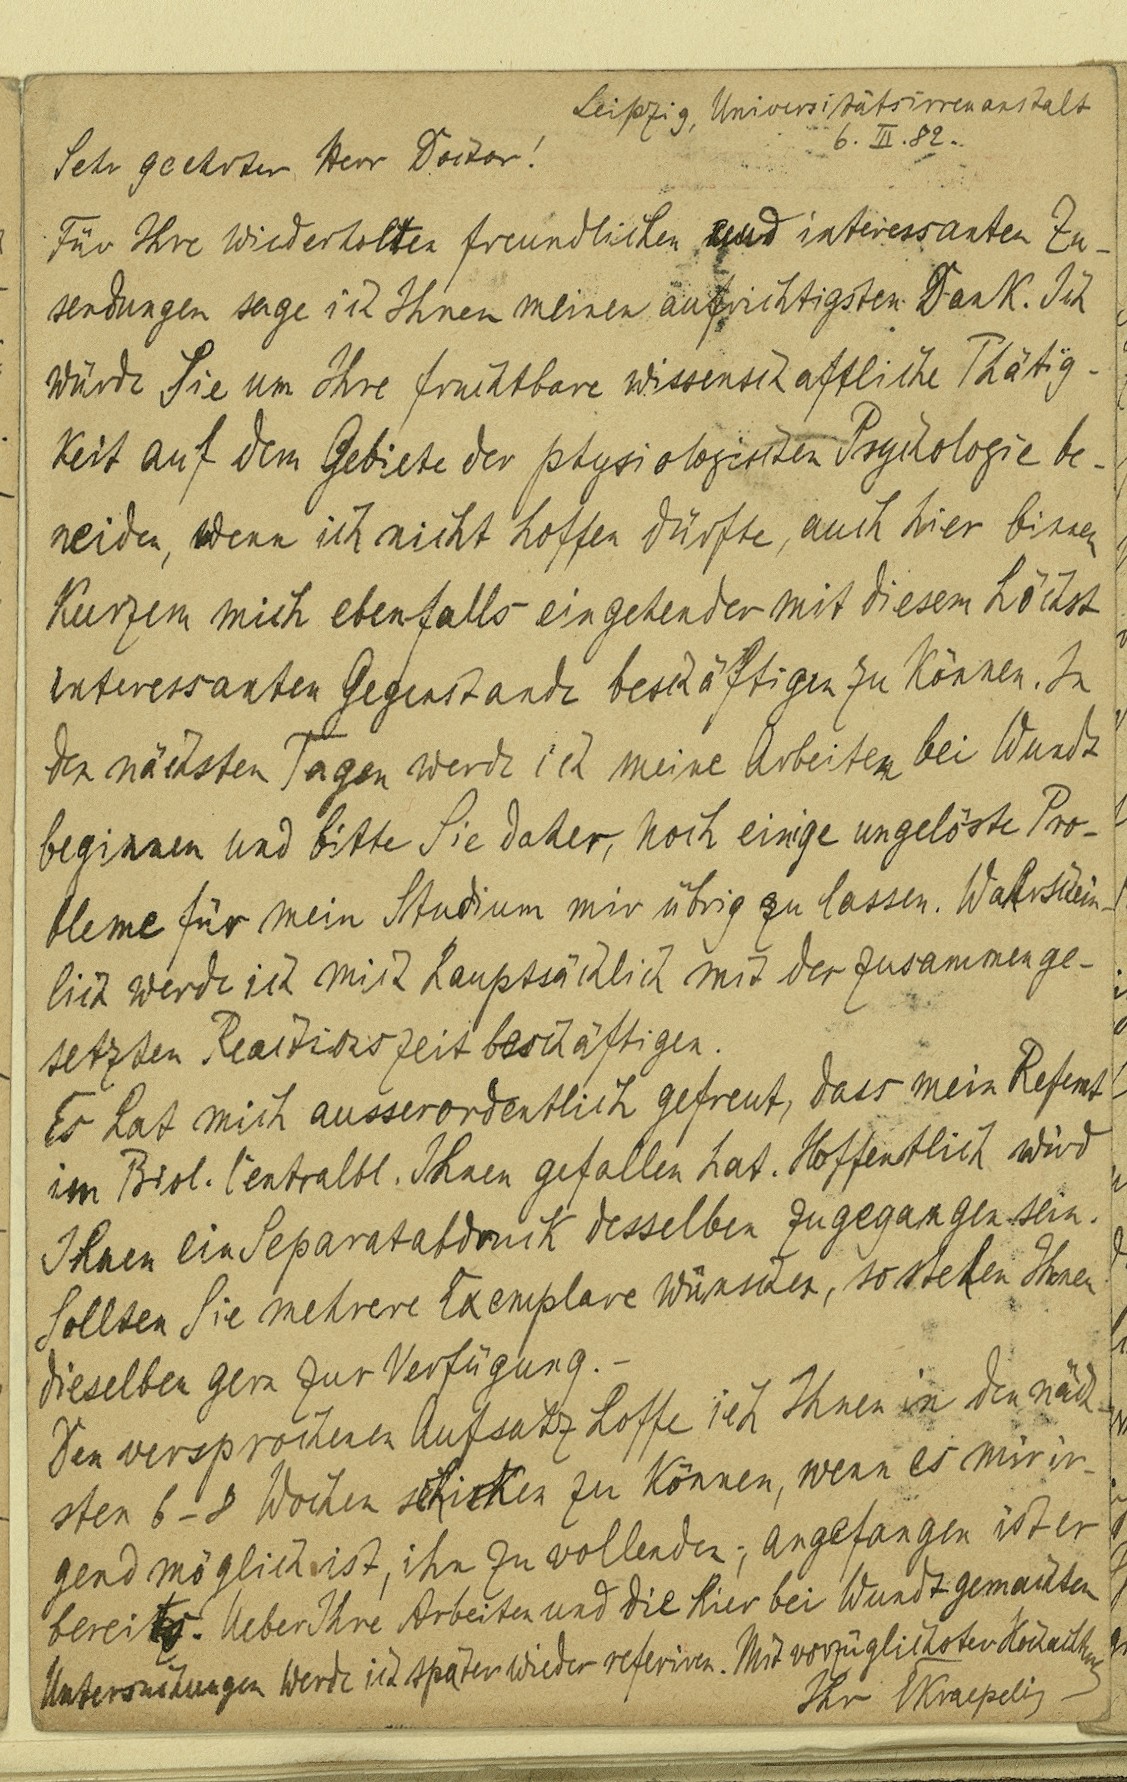 Leipzig, Universitätsirrenanstalt
6. III. 82.
Sehr geehrter Herr Doctor!
Für Ihre wiederholten freundlichen und interessanten Zu-
sendungen sage ich Ihnen meinen aufrichtigsten Dank. Ich
würde Sie um Ihre fruchtbare wissenschaftliche Thätig-
keit auf dem Gebiete der physiologischen Psychologie be-
neiden, wenn ich nicht hoffen dürfte, auch hier binnen
Kurzem mich ebenfalls eingehender mit diesem höchst
interessanten Gegenstande beschäftigen zu können. In
den nächsten Tagen werde ich meine Arbeiten bei Wundt
beginnen und bitte Sie daher, noch einige ungelöste Pro-
bleme für mein Studium mir übrig zu lassen. Wahrschein-
lich werde ich mich hauptsächlich mit der zusammenge-
setzten Reactionszeit beschäftigen.
Es hat mich ausserordentlich gefreut, dass mein Referat
im Biol. Centralbl. Ihnen gefallen hat. Hoffentlich wird
Ihnen ein Separatabdruck desselben zugegangen sein.
Sollten Sie mehrere Exemplare wünschen, so stehen Ihnen
dieselben gern zur Verfügung. –
Den versprochenen Aufsatz hoffe ich Ihnen in den näch-
sten 6–8 Wochen schicken zu können, wenn es mir ir-
gend möglich ist, ihn zu vollenden; angefangen ist er
bereits. Ueber Ihre Arbeiten und die hier bei Wundt gemachten
Untersuchungen werde ich später wieder referiren. Mit vorzüglichster Hochachtung
Ihr EKraepelin